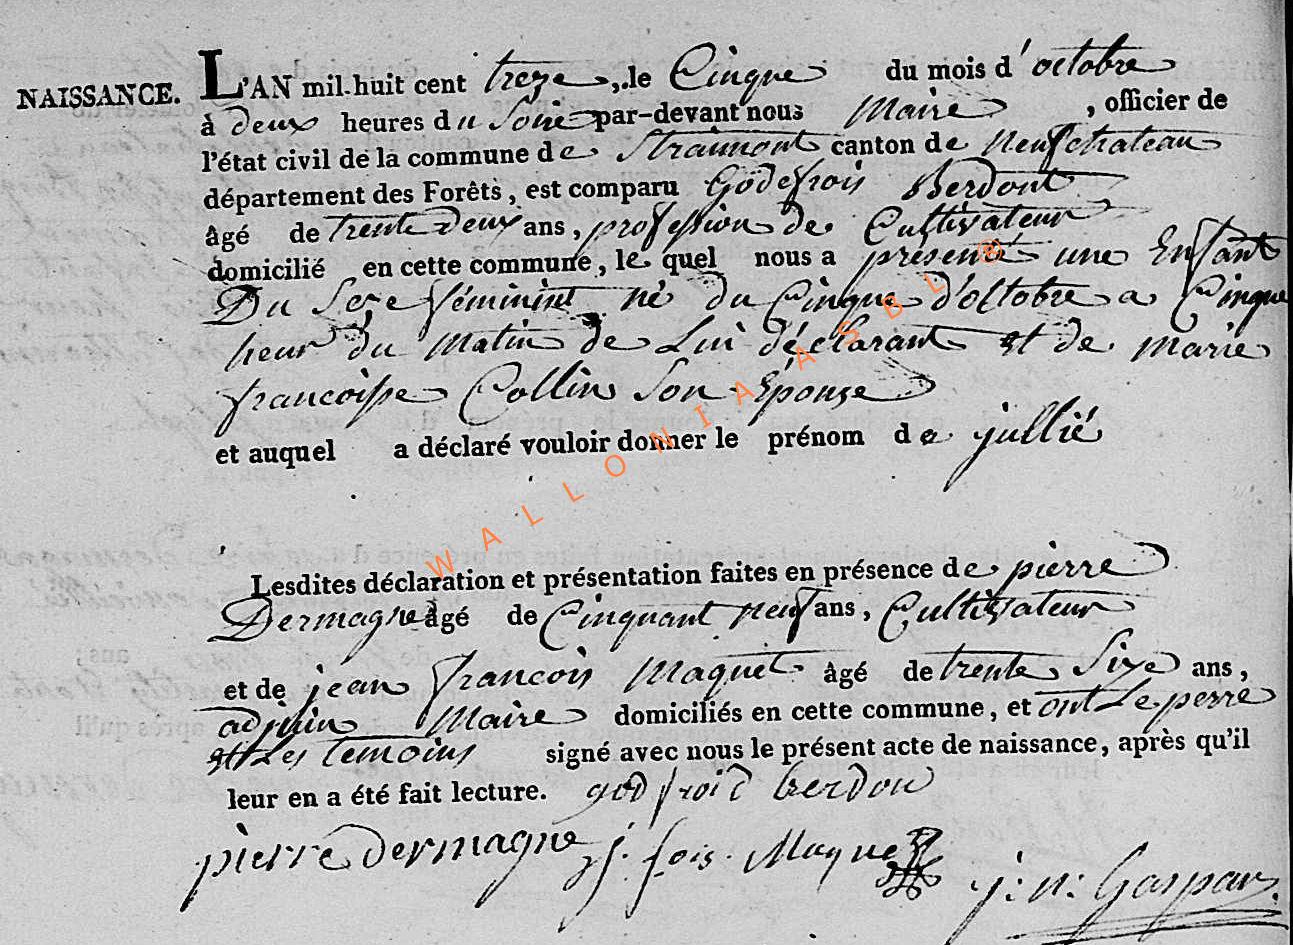 NAISSANCE.
L'AN mil-huit cent treze, le Cinque du mois d'octobre
à deux heures du Soire par-devant nous Maire, officier de
l'état civil de la commune de Straimont canton de Neufchateau
département des Forêts, est comparu Godefrois Berdont
âgé de trente Deux ans, profession de Cultivateur
domicilié en cette commune, le quel nous a présenté une Enfant
Du Sexe féminint né du Cinque d'octobre a Cinque
heur du Matin de Lui déclarant et de Marie
francoisse Collin Son Épouse
et auquel a déclaré vouloir donner le prénom de jullié
Lesdites déclaration et présentation faites en présence de pierre
Dermagne âgé de Cinquant neuf ans, Cultivateur
et de jean francois Maquet âgé de trente Sixe ans,
adjoin Maire domiciliés en cette commune, et ont Le perre
et Les temoins signé avec nous le présent acte de naissance, après qu'il
leur en a été fait lecture. godfroid berdon
pierre Dermagne j. fois. Maquet
j: n: Gaspar
WALLONIA ASBL ®